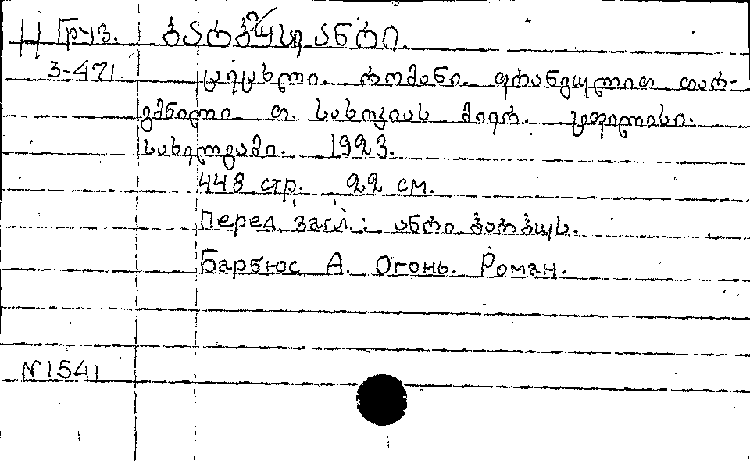 Груз. ბარბუსი ანრი.
3-471 ცეცხლი. რომანი. ფრანგულით თარ-
გმნილი თ. სახოკიას მიერ. ტფილისი.
სახელგამი. 1923.
448 стр. 22 см.
Перед загл.: ანრი ბარბუს.
Барбюс А. Огонь. Роман.
N1541